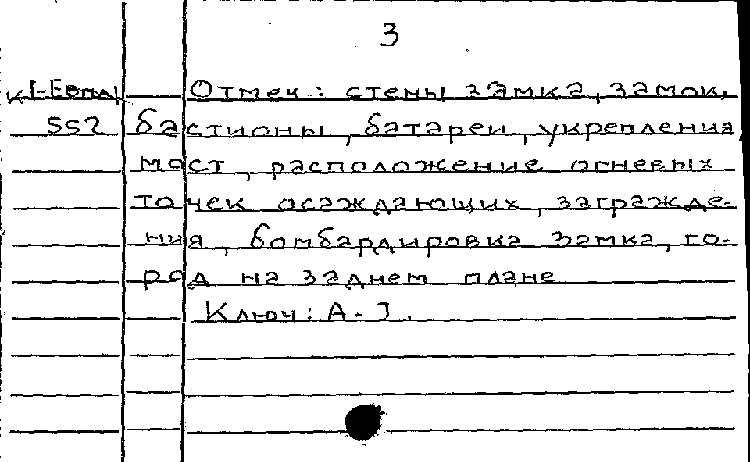 3
Отмеч: стены замка, замок,
552 бастионы, батареи, укрепления
мост, расположение огневых
точек осаждающих, загражде-
ния, бомбардировка замка, го-
род на заднем плане
Ключ: А-J.